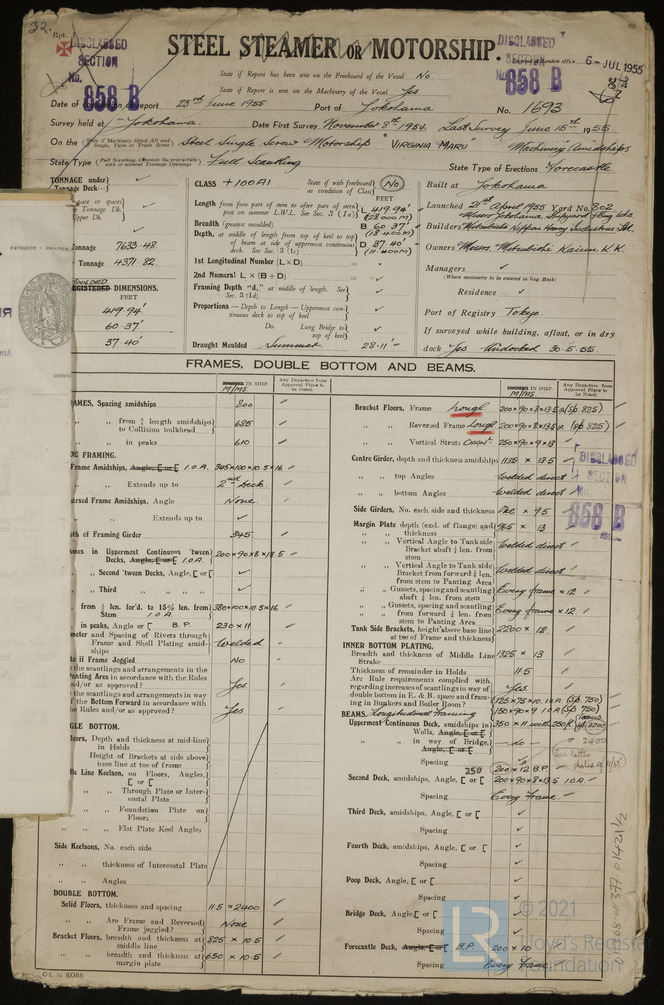 32.
Rpt.
DISCLASSED
SECTION
No.
858 B
STEEL STEAMER OR MOTORSHIP.
DISCLASSED
SECTION
858 B
6-JUL 1955
State if Report has been sent on the Freeboard of the Vessel No
State if Report is sent on the Machinery of the Vessel Yes
Date of completion of report 23rd June 1955 Port of Yokohama No. 1693
Survey held at Yokohama. Date First Survey November 8th 1954. Last Survey June 15th 1955
On the Steel Single Screw Motorship "VIRGINIA MARU" Machinery Amidships
State Type Full Scantling State Type of Erections Forecastle.
TONNAGE under
Tonnage Deck
Tonnage 7633.48.
Tonnage 4371.82.
MOULDED
REGISTERED DIMENSIONS.
FEET
419.94'
60.37'
37.40'
CLASS +100A1 State if with freeboard as condition of Class No
FEET
Length from fore part of stem to after part of stern post on summer L.W.L. See Sec. 3 (1a) L 419.94' (128.000 M)
Breadth (greatest moulded) B 60.37' (18.400 M)
Depth, at middle of length from top of keel to top of beam at side of uppermost continuous deck. See Sec. 3 (1c) D 37.40' (11.400 M)
1st Longitudinal Number (L×D)
2nd Numeral L×(B+D)
Framing Depth "d," at middle of length. See Sec. 3 (1d)
Proportions—Depth to Length—Uppermost continuous deck to top of keel
Do. Long Bridge to top of keel
Draught Moulded Summer 28-11"
Built at Yokohama
Launched 21st April 1955 Yard No. 802
Builders Mitsubishi Nippon Heavy Industries Ltd.
Owners Messrs. Mitsubishi Kaiun K.K.
Managers
(Where necessary to be entered in Reg. Book)
Residence
Port of Registry Tokyo.
If surveyed while building, afloat, or in dry
dock Yes. Undocked 30.5.55.
FRAMES, DOUBLE BOTTOM AND BEAMS.
IN SHIP.
M/MS
Any Departure from Approved Plans to be Noted.
FRAMES, Spacing amidships 800
" " from ⅗ length amidships to Collision bulkhead 685
" " in peaks 610
FRAMING.
Frame Amidships, Angle, [ or [ I.O.A. 345×100×10.5×16
" " Extends up to 2nd Deck.
Reversed Frame Amidships, Angle None.
" " Extends up to
Depth of Framing Girder 345
Frames in Uppermost Continuous 'tween Decks, Angle, [ or [ I.O.A. 200×90×8×13.5
" " Second 'tween Decks, Angle, [ or [
" " Third
" from ⅗ len. for'd. to 15% len. from Stem I.O.A. 380×100×10.5×16
" in peaks, Angle or [ B.P. 230×11
Diameter and Spacing of Rivets through Frame and Shell Plating amidships Welded
State if Frame Joggled No
the scantlings and arrangements in the Panting Area in accordance with the Rules and/or as approved? Yes.
the scantlings and arrangements in way of the Bottom Forward in accordance with the Rules and/or as approved? Yes
SINGLE BOTTOM.
Floors, Depth and thickness at mid-line in Holds
Height of Brackets at side above base line at toe of frame
Middle Line Keelson, on Floors, Angles, [ or [
" " Through Plate or Intercostal Plate
" " Foundation Plate on Floors
" " Flat Plate Keel Angles
Side Keelsons, No. each side
" " thickness of Intercostal Plate
" " Angles
DOUBLE BOTTOM.
Solid Floors, thickness and spacing 11.5 × 2400
" " Are Frame and Reversed Frame joggled? None
Bracket Floors, breadth and thickness at middle line 825 × 10.5
" " breadth and thickness at margin plate 650 × 10.5
C-L 51 KOBE
IN SHIP.
M/MS
Any Departure from Approved Plans to be Noted.
Bracket Floors, Frame Lougl 200×90×8×13.5 (Sp. 825)
" " Reversed Frame Lougl 200×90×8×13.5 (Sp. 825)
" " Vertical Struts CHAN. 250×90×9×13
Centre Girder, depth and thickness amidships 1135 × 13.5
" " top Angles Welded direct
" " bottom Angles Welded direct
Side Girders, No. each side and thickness One × 9.5
Margin Plate depth (excl. of flange) and thickness 965 × 13
" " Vertical Angle to Tank side Bracket abaft ¼ len. from stem Welded direct
" " Vertical Angle to Tank side Bracket from forward ¼ len. from stem to Panting Area Welded direct
" " Gussets, spacing and scantling abaft ¼ len. from stem Every frame × 12.
" " Gussets, spacing and scantling from forward ¼ len. from stem to Panting Area Every frame × 12
Tank Side Brackets, height above base line at toe of Frame and thickness 2200 × 12.
INNER BOTTOM PLATING.
Breadth and thickness of Middle Line Strake 1325 × 13
Thickness of remainder in Holds 11.5
Are Rule requirements complied with regarding increase of scantlings in way of double bottom in E. & B. space and framing in Bunkers and Boiler Room? Yes.
125×75×10. I.A (Sp. 750)
BEAMS, Longitudinal Framing 150×90×9 I.A (Sp. 750)
Uppermost Continuous Deck, amidships in Wells, Angle, [ or [ 350 × 11
" " in way of Bridge, Angle, [ or [ — do —
2400
See letter
Spacing
250 200×12 B.P.
Second Deck, amidships, Angle, [ or [ 200×90×8×13.5 I.O.A.
Spacing Every Frame.
Third Deck, amidships, Angle, [ or [
Spacing
Fourth Deck, amidships, Angle, [ or [
Spacing
Poop Deck, Angle, [ or [
Spacing
Bridge Deck, Angle, [ or [
Spacing
Forecastle Deck, Angle, [ or [ B.P. 200 × 10
Spacing Every Frame
DISCLASSED
SECTION
858 B
LR
© 2021
Lloyd's Register
Foundation